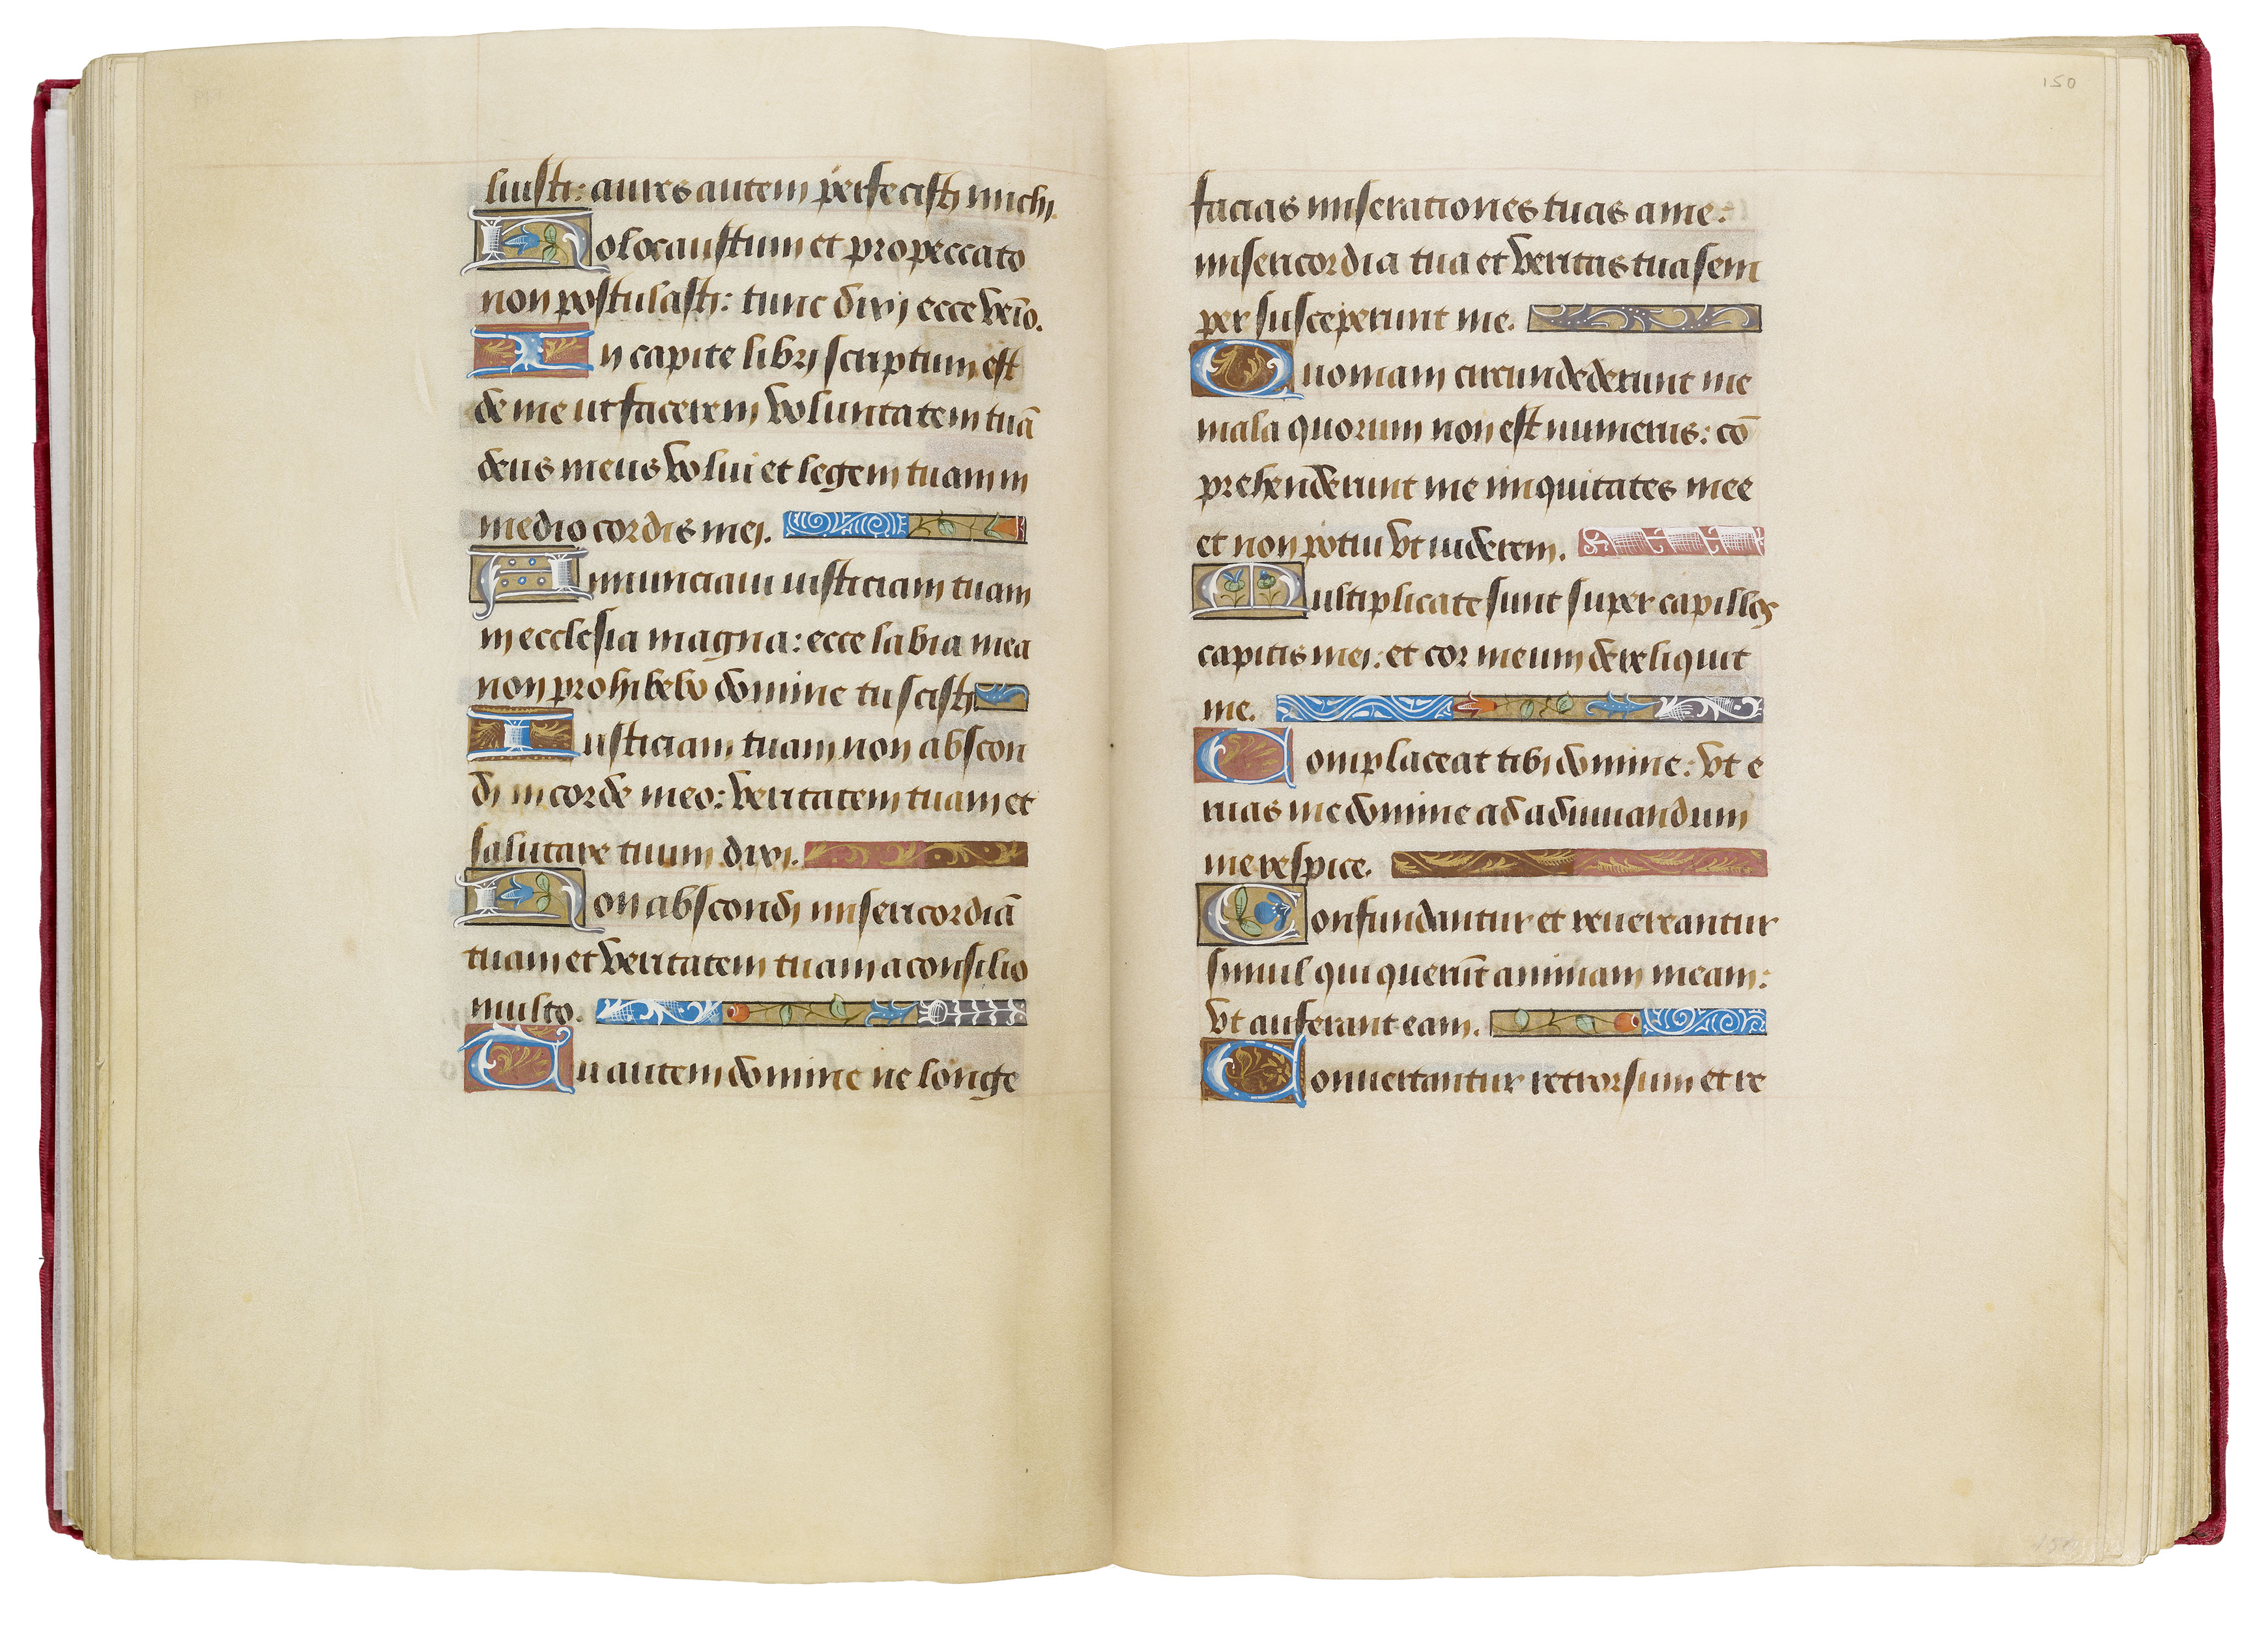 luisti: aures autem perfecisti michi.
Holocaustum et pro peccato
non postulasti: tunc dixi ecce veīo.
In capite libri scriptum est
de me ut facerem voluntatem tuā
deus meus volui et legem tuam in
medio cordis mei.
Annunciaui iusticiam tuam
in ecclesia magna: ecce labia mea
non prohibebo domine tu scisti
Iusticiam tuam non abscon
di in corde meo: veritatem tuam et
salutare tuum dixi.
Non abscondi misericordiā
tuam et veritatem tuam a consilio
multo.
Tu autem domine ne longe
150
facias miserationes tuas a me:
misericordia tua et veritas tua sem
per susceperunt me.
Quoniam circundederunt me
mala quorum non est numerus: cō
prehenderunt me iniquitates mee
et non potui vt viderem.
Multiplicate sunt super capillos
capitis mei: et cor meum dereliquit
me.
Complaceat tibi domine: vt e
ruas me domine ad adiuuandum
me respice.
Confundantur et reuereantur
simul qui querūt animam meam:
vt auferant eam.
Conuertantur retrorsum et re